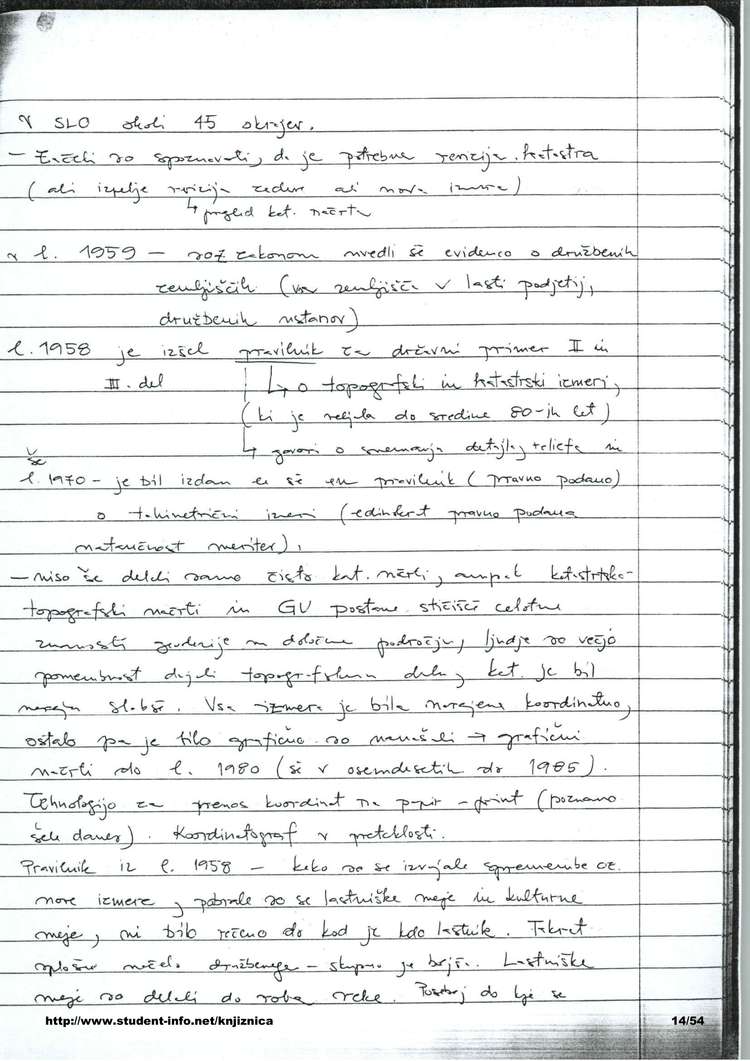 V SLO okoli 45 okrajev.
- Začeli so spoznavati, da je potrebna revizija katastra
(ali izpelje revizija zadeve ali nova izmera)
↳ pregled kat. načrta
v l. 1959 - so z zakonom uvedli še evidenco o družbenih
zemljiščih (vsa zemljišča v lasti podjetij,
družbenih ustanov)
l. 1958 je izšel pravilnik za državni primer II in
III. del ↳ o topografski in katastrski izmeri,
(ki je veljala do sredine 80-ih let)
↳ govori o snemanju detajla, reliefa in
še
l. 1970 - je bil izdan še en pravilnik (pravno podano)
o tahimetrični izmeri (edinkrat pravno podana
natančnost meritev),
- niso še delali samo čisto kat. načrti, ampak katastrsko-
topografski načrti in GU postane stičišče celotne
geodezije na določenem področju, ljudje so večjo
pomembnost dajali topografskemu delu, kat. je bil
narejen slabše. Vsa izmera je bila narejena koordinatno,
ostalo pa je bilo grafično so nanašali → grafični
načrti do l. 1980 (še v osemdesetih do 1985).
Tehnologijo za prenos koordinat na papir - print (poznamo
šele danes). Koordinatograf v preteklosti.
Pravilnik iz l. 1958 - kako so se izvajale spremembe oz.
nove izmere, pobirale so se lastniške meje in kulturne
meje, ni bilo rečeno do kod je kdo lastnik. Takrat
splošno načelo družbenega - skupno je boljše. Lastniške
meje so delali do roba reke. do kje se
http://www.student-info.net/knjiznica 14/54